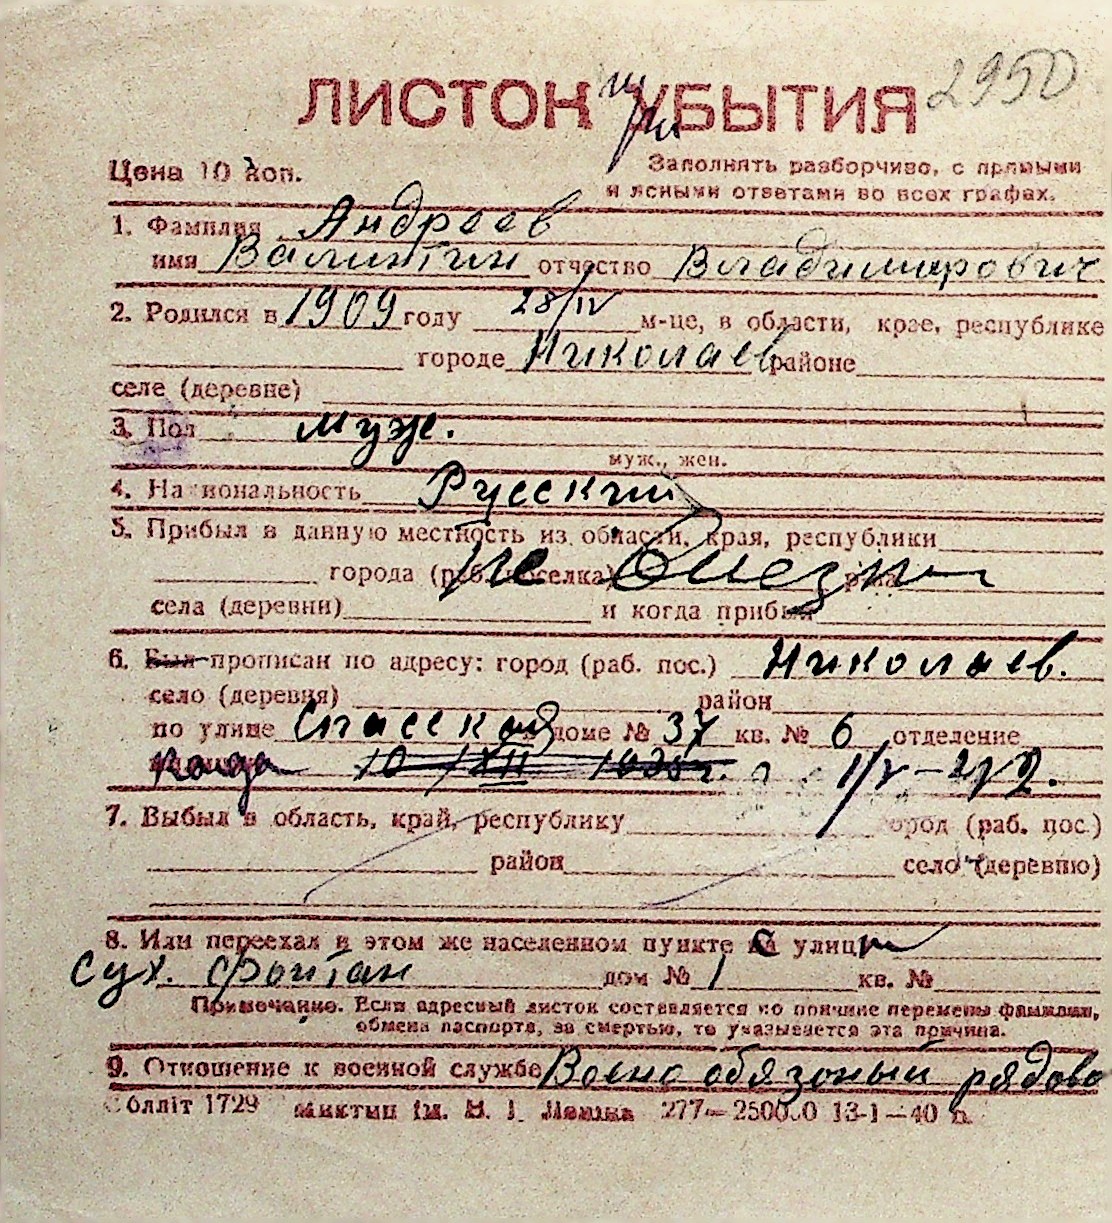 2950
ЛИСТОК УБЫТИЯ
при
Цена 10 коп.
Заполнять разборчиво, с прямыми
и ясными ответами во всех графах.
1. Фамилия Андреев
имя Валинтин отчество Владимирович
2. Родился в 1909 году 28/IV м-це, в области, крае, республике
городе Николаев районе
селе (деревне)
3. Пол муж.
муж., жен.
4. Национальность Русский
5. Прибыл в данную местность из области, края, республики
города (раб. поселка) района
села (деревни) и когда прибыл
6. Был прописан по адресу: город (раб. пос.) Николаев.
село (деревня) район
по улице Спасская доме № 37 кв. № 6 отделение
когда 10 XII 1/V-
7. Выбыл в область, край, республику город (раб. пос.)
район село (деревню)
8. Или переехал в этом же населенном пункте с улицы
Сух. фонтан дом № 1 кв. №
Примечание. Если адресный листок составляется по причине перемены фамилии,
обмена паспорта, за смертью, то указывается эта причина.
9. Отношение к военной службе Воено обязоный рядово
Обллiт 1729 iм. 13-1-40 р.